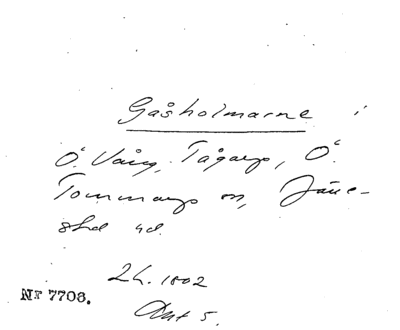 Gåsholmarne i
Ö. Vång, Tågarp, Ö.
Tommarps sn, Järre-
stad hd.
Lh. 1802
Akt 5.
Nr 7708.